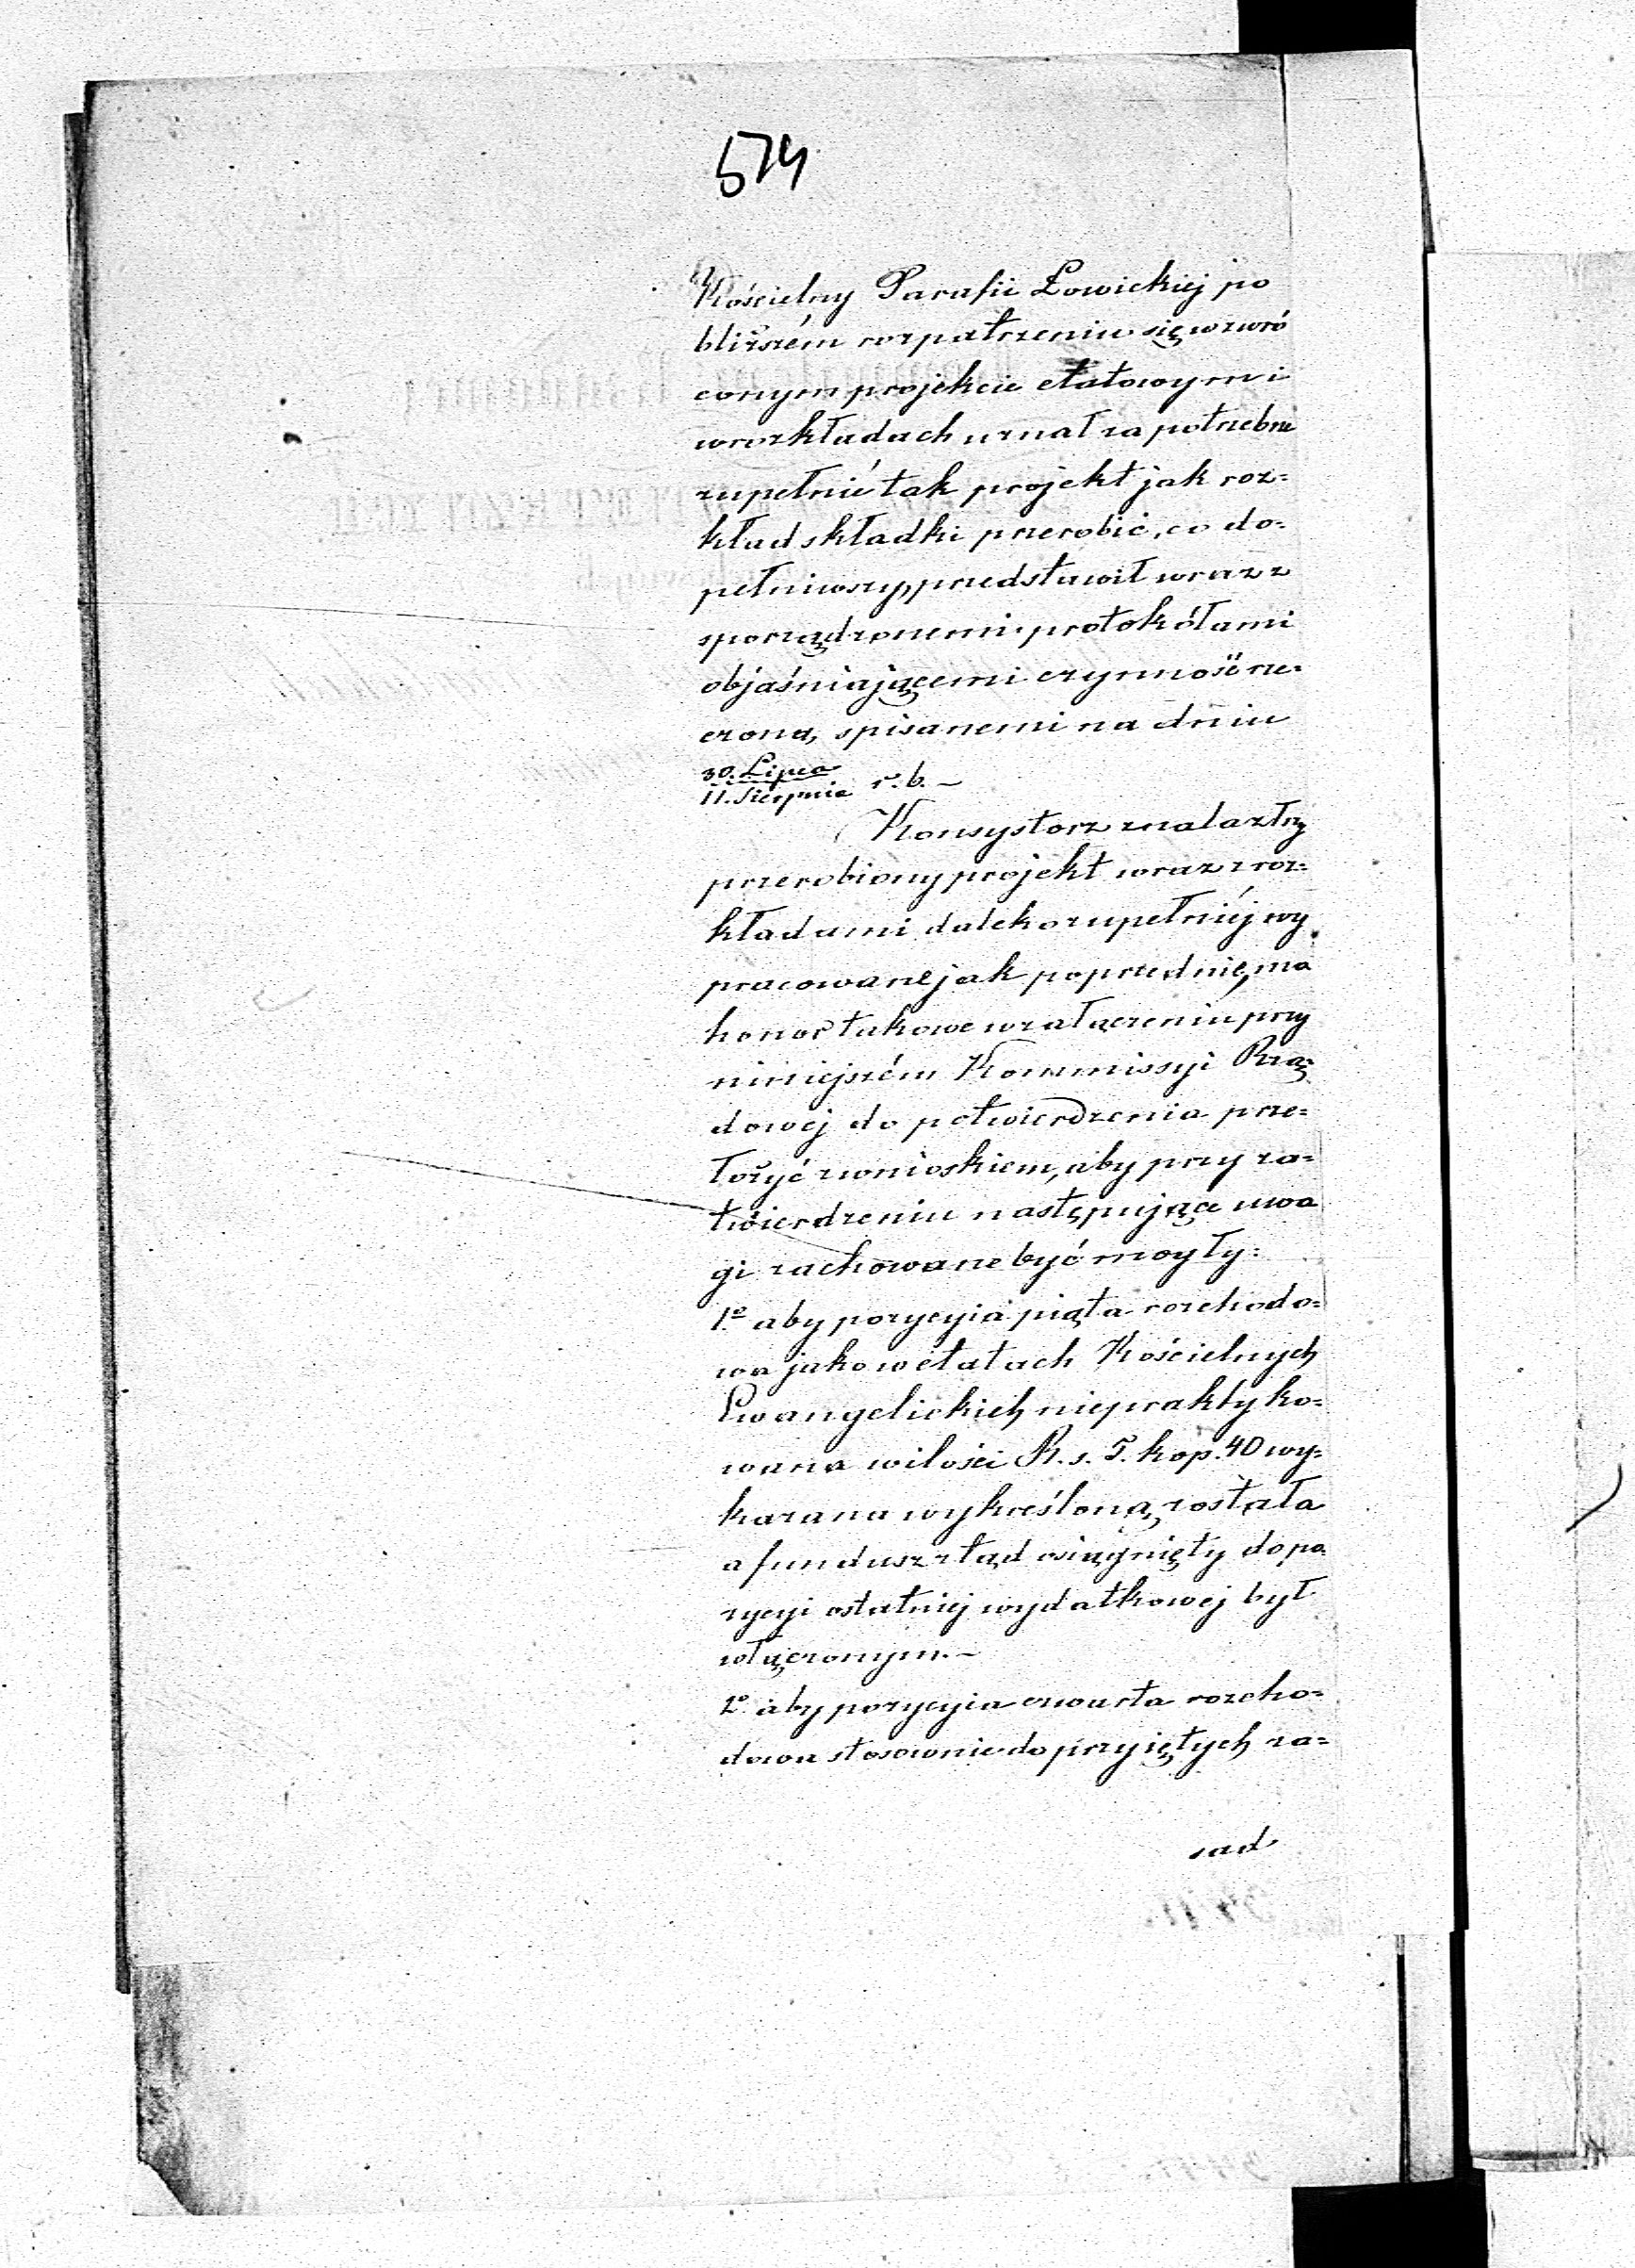 574
Kościelny Parafii Łowickiej po
bliższém rozpatrzeniu się w zwró
conym projekcie etatowym i
w rozkładach uznał za potrzebne
zupełnie tak projekt jak roz=
kład składki przerobić, co do=
pełniwszy, przedstawił wraz z
sporządzonemi protokółami
objaśniającemi czynność rze=
czoną, spisanemi na dniu
30. Lipca
11. Sierpnia r. b. –
Konsystorz znalazłszy
przerobiony projekt wraz z roz=
kładami daleko zupełniéj wy
pracowane jak poprzednie, ma
honor takowe w załączeniu przy
niniejszém Kommissyi Rzą=
dowej do potwierdzenia prze=
łożyć z wnioskiem, aby przy za=
twierdzeniu następujące uwa
gi zachowane być mogły:
1º aby pozycyia piąta rozchodo=
wa jako w etatach Kościelnych
Ewangelickich niepraktyko=
wana w ilości R. s. 5. kop. 40 wy=
kazana wykreśloną została
a fundusz ztąd osiągnięty do po
zycyi ostatniej wydatkowej był
włączonym. –
2º aby pozycyia czwarta rozcho=
dowa stosownie do przyiętych za=
sad